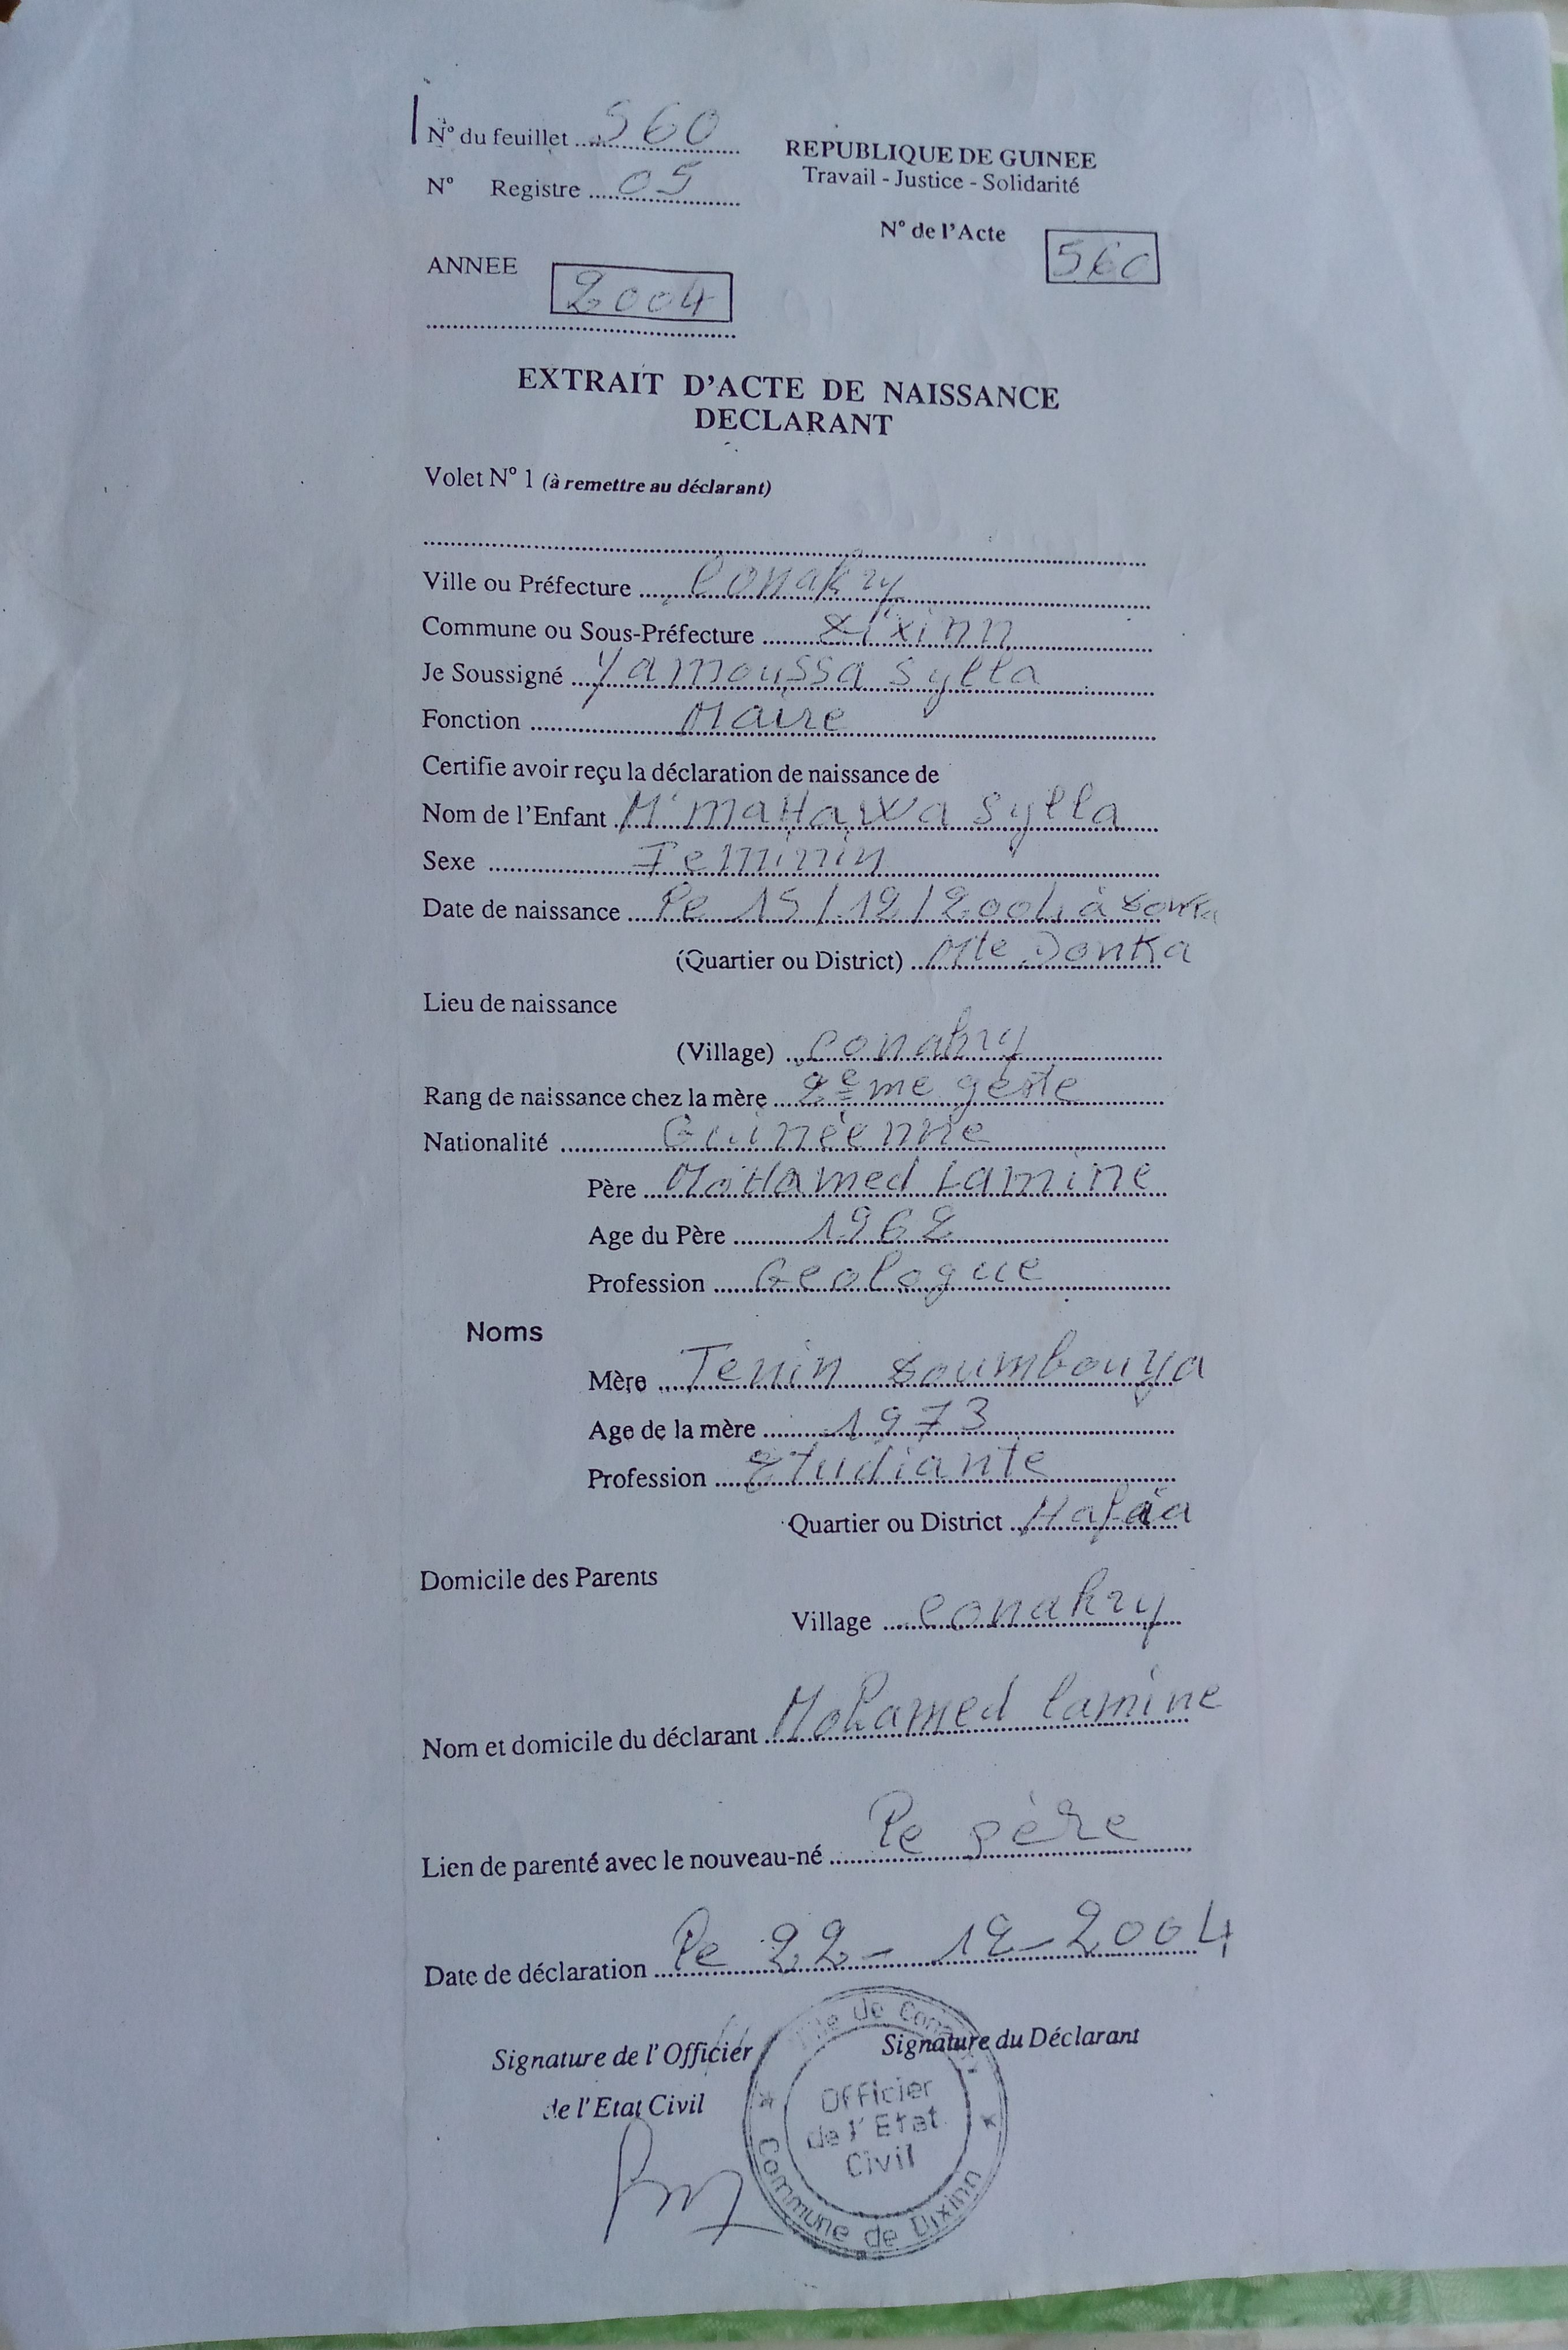 N° du feuillet 560
N° Registre 05
REPUBLIQUE DE GUINEE
Travail - Justice - Solidarité
N° de l'Acte 560
ANNEE 2004
EXTRAIT D'ACTE DE NAISSANCE
DECLARANT
Volet N° 1 (à remettre au déclarant)
Ville ou Préfecture Conakry
Commune ou Sous-Préfecture Dixinn
Je Soussigné Yamoussa Sylla
Fonction Maire
Certifie avoir reçu la déclaration de naissance de
Nom de l'Enfant M'maHawa Sylla
Sexe Feminin
Date de naissance le 15/12/2004 à
(Quartier ou District) Mte Donka
Lieu de naissance
(Village) Conakry
Rang de naissance chez la mère 2ème geste
Nationalité Guinéenne
Père MoHamed Lamine
Age du Père 1962
Profession Geologue
Noms
Mère Tenin Doumbouya
Age de la mère 1973
Profession Etudiante
Quartier ou District Hafia
Domicile des Parents
Village Conakry
Nom et domicile du déclarant Mohamed lamine
Lien de parenté avec le nouveau-né le père
Date de déclaration le 22-12-2004
Signature de l'Officier
de l'Etat Civil
Signature du Déclarant
Ville de Conakry
Officier
de l'Etat
Civil
Commune de Dixinn